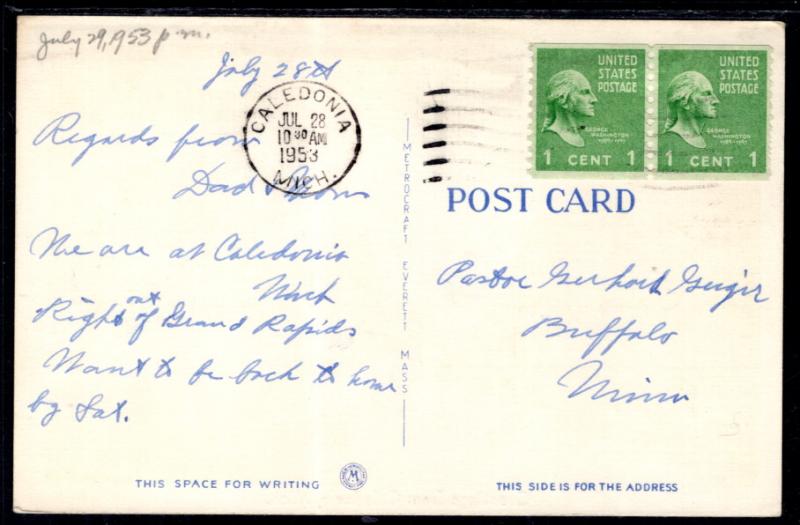 July 29, 1953 p.m.
July 28th
Regards from
Dad & Mom
We are at Caledonia
Mich
Right out of Grand Rapids
Want to be back to home
by Sat.
THIS SPACE FOR WRITING
M
METROCRAFT EVERETT MASS
CALEDONIA
JUL 28
10 30 AM
1953
MICH.
UNITED
STATES
POSTAGE
GEORGE
WASHINGTON
1789-1797
1 CENT 1
UNITED
STATES
POSTAGE
GEORGE
WASHINGTON
1789-1797
1 CENT 1
POST CARD
Pastor Gerhard Geiger
Buffalo
Minn
THIS SIDE IS FOR THE ADDRESS